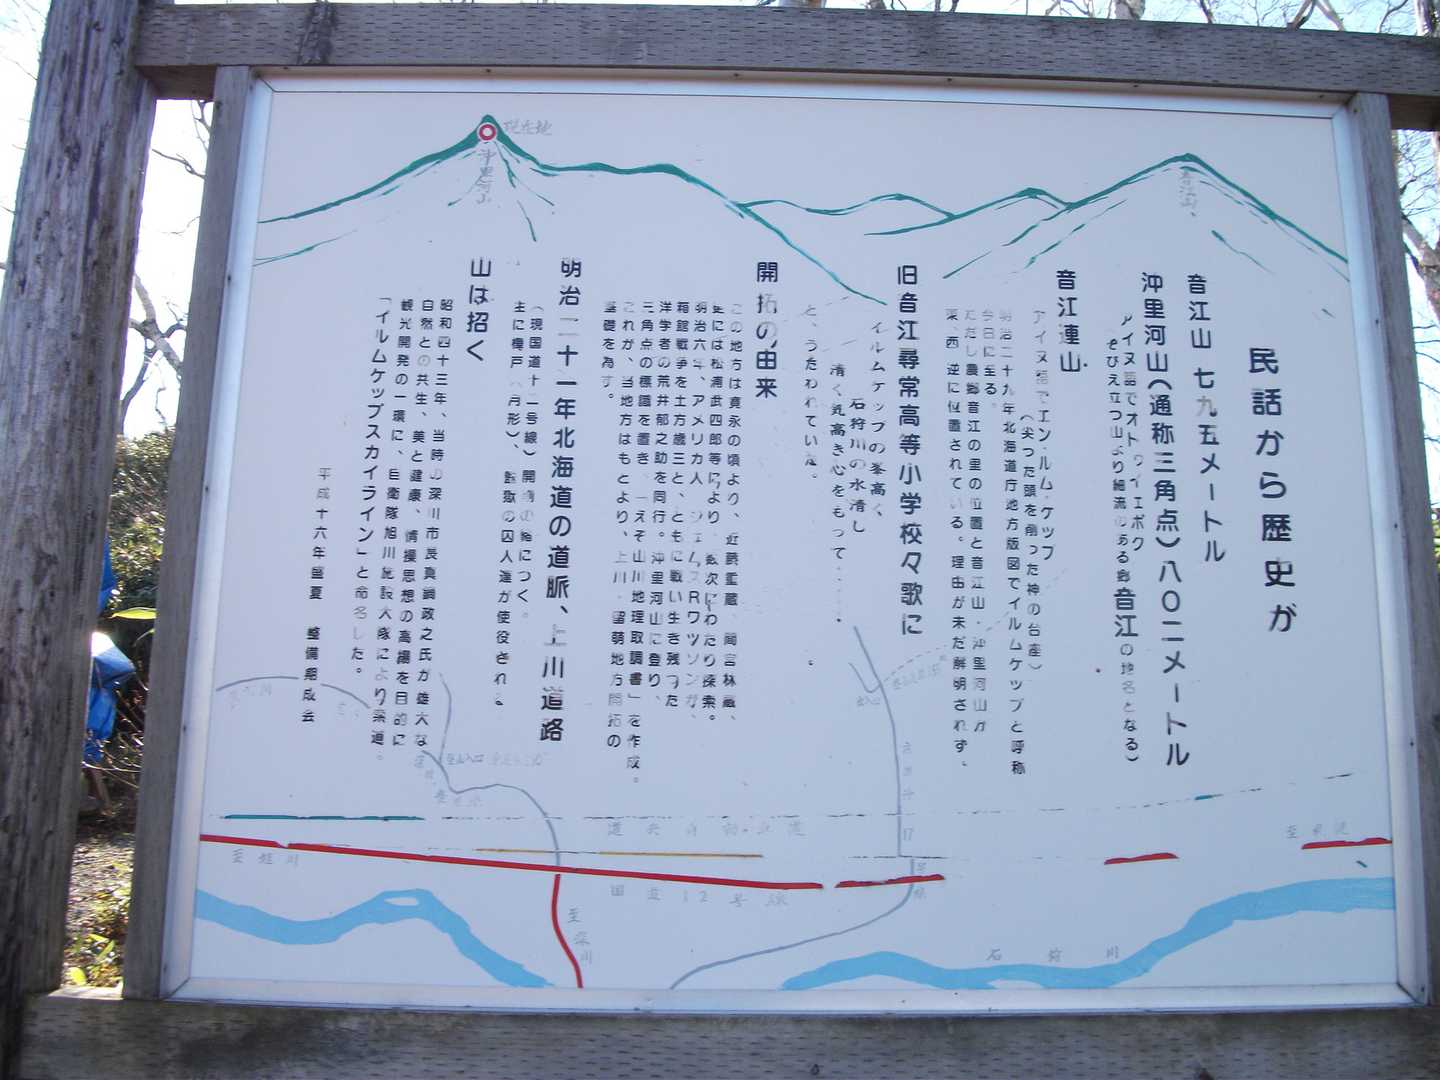 民話から歴史が
音江山 七九五メートル
沖里河山(通称三角点)八〇二メートル
アイヌ語でオトゥイェポク
そびえ立つ山より細流のある郷音江の地名となる)
音江連山
アイヌ語でエン・ルム・ケップ
(尖った頭を削った神の台座)
明治二十九年北海道庁地方版図でイルムケップと呼称
今日に至る。
ただし農郷音江の里の位置と音江山・沖里河山が
東、西 逆に位置されている。理由が未だ解明されず、
旧音江尋常高等小学校々歌に
イルムケップの峯高く
石狩川の水清し
清く気高き心をもって
と、うたわれていた。
開拓の由来
この地方は寛永の頃より、近藤重蔵、間宮林蔵、
更には松浦武四郎等により、数次にわたり探索。
明治六年、アメリカ人、ジェームスRワツソンが、
箱館戦争を土方歳三と、ともに戦い生き残った
洋学者の荒井郁之助を同行。沖里河山に登り、
三角点の標識を置き、「えぞ山川地理取調書」を作成。
これが、当地方はもとより、上川・留萌地方開拓の
基礎を為す。
明治二十一年北海道の道脈、上川道路
(現国道十二号線)開削の緒につく。
主に樺戸(月形)、監獄の囚人達が使役される
山は招く
昭和四十三年、当時の深川市長真鍋政之氏が雄大な
自然との共生、美と健康、情操思想の高揚を目的に
観光開発の一環に、自衛隊旭川施設大隊により築道。
「イルムケップスカイライン」と命名した。
平成十六年盛夏 整備期成会
現在地
沖里河山
音江山
登山入口
道央自動車道
国道12号線
至滝川
至深川
石狩川